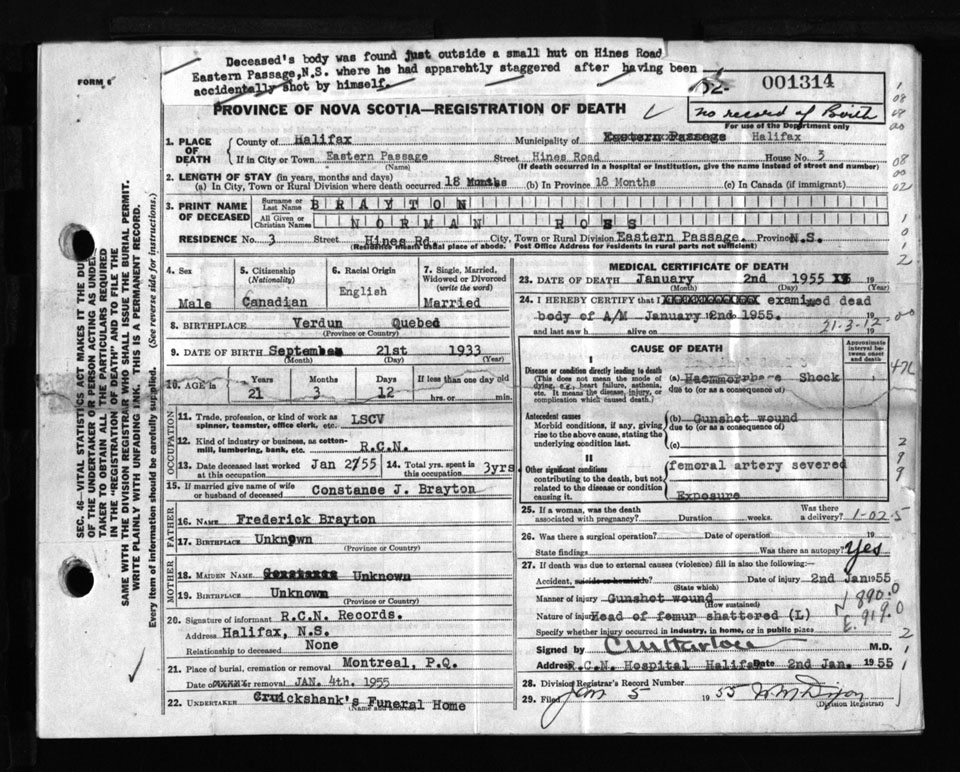 Deceased's body was found just outside a small hut on Hines Road
Eastern Passage,N.S. where he had apparehtly staggered after having been
accidentally shot by himself.
FORM 6
001314
PROVINCE OF NOVA SCOTIA—REGISTRATION OF DEATH
no record of Birth
For use of the Department only
1. PLACE OF DEATH
County of Halifax Municipality of Eastern Passage Halifax
If in City or Town Eastern Passage Street Hines Road House No. 3
(Name) (If death occurred in a hospital or institution, give the name instead of street and number)
2. LENGTH OF STAY (in years, months and days)
(a) In City, Town or Rural Division where death occurred 18 Months (b) In Province 18 Months (c) In Canada (if immigrant)
3. PRINT NAME OF DECEASED
Surname or Last Name BRAYTON
All Given or Christian Names NORMAN ROSS
RESIDENCE No. 3 Street Hines Rd. City, Town or Rural Division Eastern Passage. Province N.S.
(Residence means usual place of abode. Post Office Address for residents in rural parts not sufficient)
4. Sex
Male
5. Citizenship
(Nationality)
Canadian
6. Racial Origin
English
7. Single, Married, Widowed or Divorced
(write the word)
Married
8. BIRTHPLACE Verdun Quebec
(Province or Country)
9. DATE OF BIRTH September 21st 1933
(Month) (Day) (Year)
10. AGE in
Years Months Days If less than one day old
21 3 12 hrs. or min.
OCCUPATION
11. Trade, profession, or kind of work as spinner, teamster, office clerk, etc. LSCV
12. Kind of industry or business, as cotton-mill, lumbering, bank, etc. R.C.N.
13. Date deceased last worked at this occupation Jan 2/55
14. Total yrs. spent in this occupation 3yrs.
15. If married give name of wife or husband of deceased Constanse J. Brayton
FATHER
16. Name Frederick Brayton
17. Birthplace Unknown
(Province or Country)
MOTHER
18. Maiden Name Unknown
19. Birthplace Unknown
(Province or Country)
20. Signature of informant R.C.N. Records.
Address Halifax, N.S.
Relationship to deceased None
21. Place of burial, cremation or removal Montreal, P.Q.
Date of or removal JAN. 4th. 1955
22. UNDERTAKER Cruickshank's Funeral Home
(Name and address)
MEDICAL CERTIFICATE OF DEATH
23. DATE OF DEATH January 2nd 1955 19
(Month) (Day) (Year)
24. I HEREBY CERTIFY that I examined dead
body of A/M January 2nd 1955.
and last saw h alive on 19
21-3-12-00
CAUSE OF DEATH
Approximate interval between onset and death
I
Disease or condition directly leading to death
(This does not mean the mode of dying, e.g., heart failure, asthenia, etc. It means the disease, injury, or complication which caused death.)
(a) Haemmorrhage Shock
due to (or as a consequence of)
Antecedent causes
Morbid conditions, if any, giving rise to the above cause, stating the underlying condition last.
(b) Gunshot wound
due to (or as a consequence of)
(c)
II
Other significant conditions contributing to the death, but not related to the disease or condition causing it.
femoral artery severed
Exposure
25. If a woman, was the death associated with pregnancy? Duration weeks. Was there a delivery?
1-02-5
26. Was there a surgical operation? Date of operation 19
State findings Was there an autopsy? Yes
27. If death was due to external causes (violence) fill in also the following:—
Accident, suicide or homicide? Date of injury 2nd Jan 1955
(State which)
Manner of injury Gunshot wound
(How sustained)
N 890.0
Nature of injury Head of femur shattered (L)
E. 919.0
Specify whether injury occurred in industry, in home, or in public place
Signed by M.D.
Address R.C.N. Hospital Halifax Date 2nd Jan. 1955
28. Division Registrar's Record Number
29. Filed Jan 5 1955
(Division Registrar)
SEC. 46—VITAL STATISTICS ACT MAKES IT THE DU
OF THE UNDERTAKER OR PERSON ACTING AS UNDE
TAKER TO OBTAIN ALL THE PARTICULARS REQUIRED
IN THE "REGISTRATION OF DEATH" AND TO FILE THE
SAME WITH THE DIVISION REGISTRAR WHO SHALL ISSUE THE BURIAL PERMIT.
WRITE PLAINLY WITH UNFADING INK. THIS IS A PERMANENT RECORD.
Every item of information should be carefully supplied. (See reverse side for instructions.)